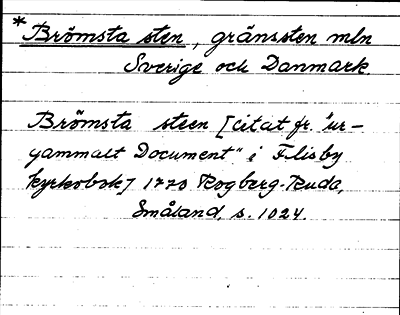 * Brömsta sten, gränssten mln
Sverige och Danmark.
Brömsta steen [citat fr. "ur-
gammalt Document" i Flisby
kyrkobok] 1770 Rogberg-Ruda,
Småland, s. 1024.